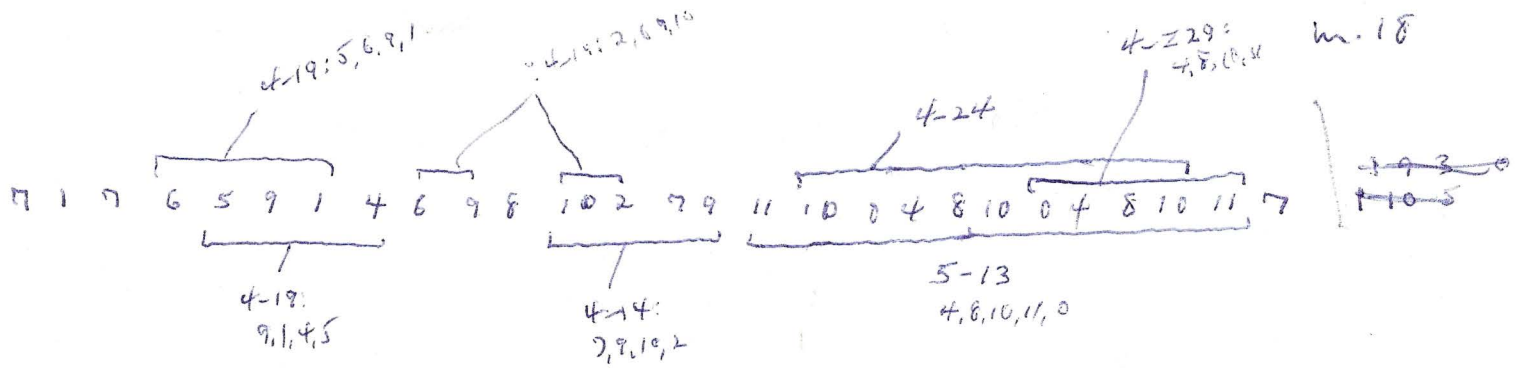 4-19: 5,6,9,1
4-19: 2,6,9,10
4-Z29:
4,8,10,11
m. 18
4-24
7 1 7 6 5 9 1 4 6 9 8 10 2 7 9 11 10 0 4 8 10 0 4 8 10 11 7
1 9 3 0
1 10 5
4-19:
9,1,4,5
4-14:
7,9,10,2
5-13
4,8,10,11,0